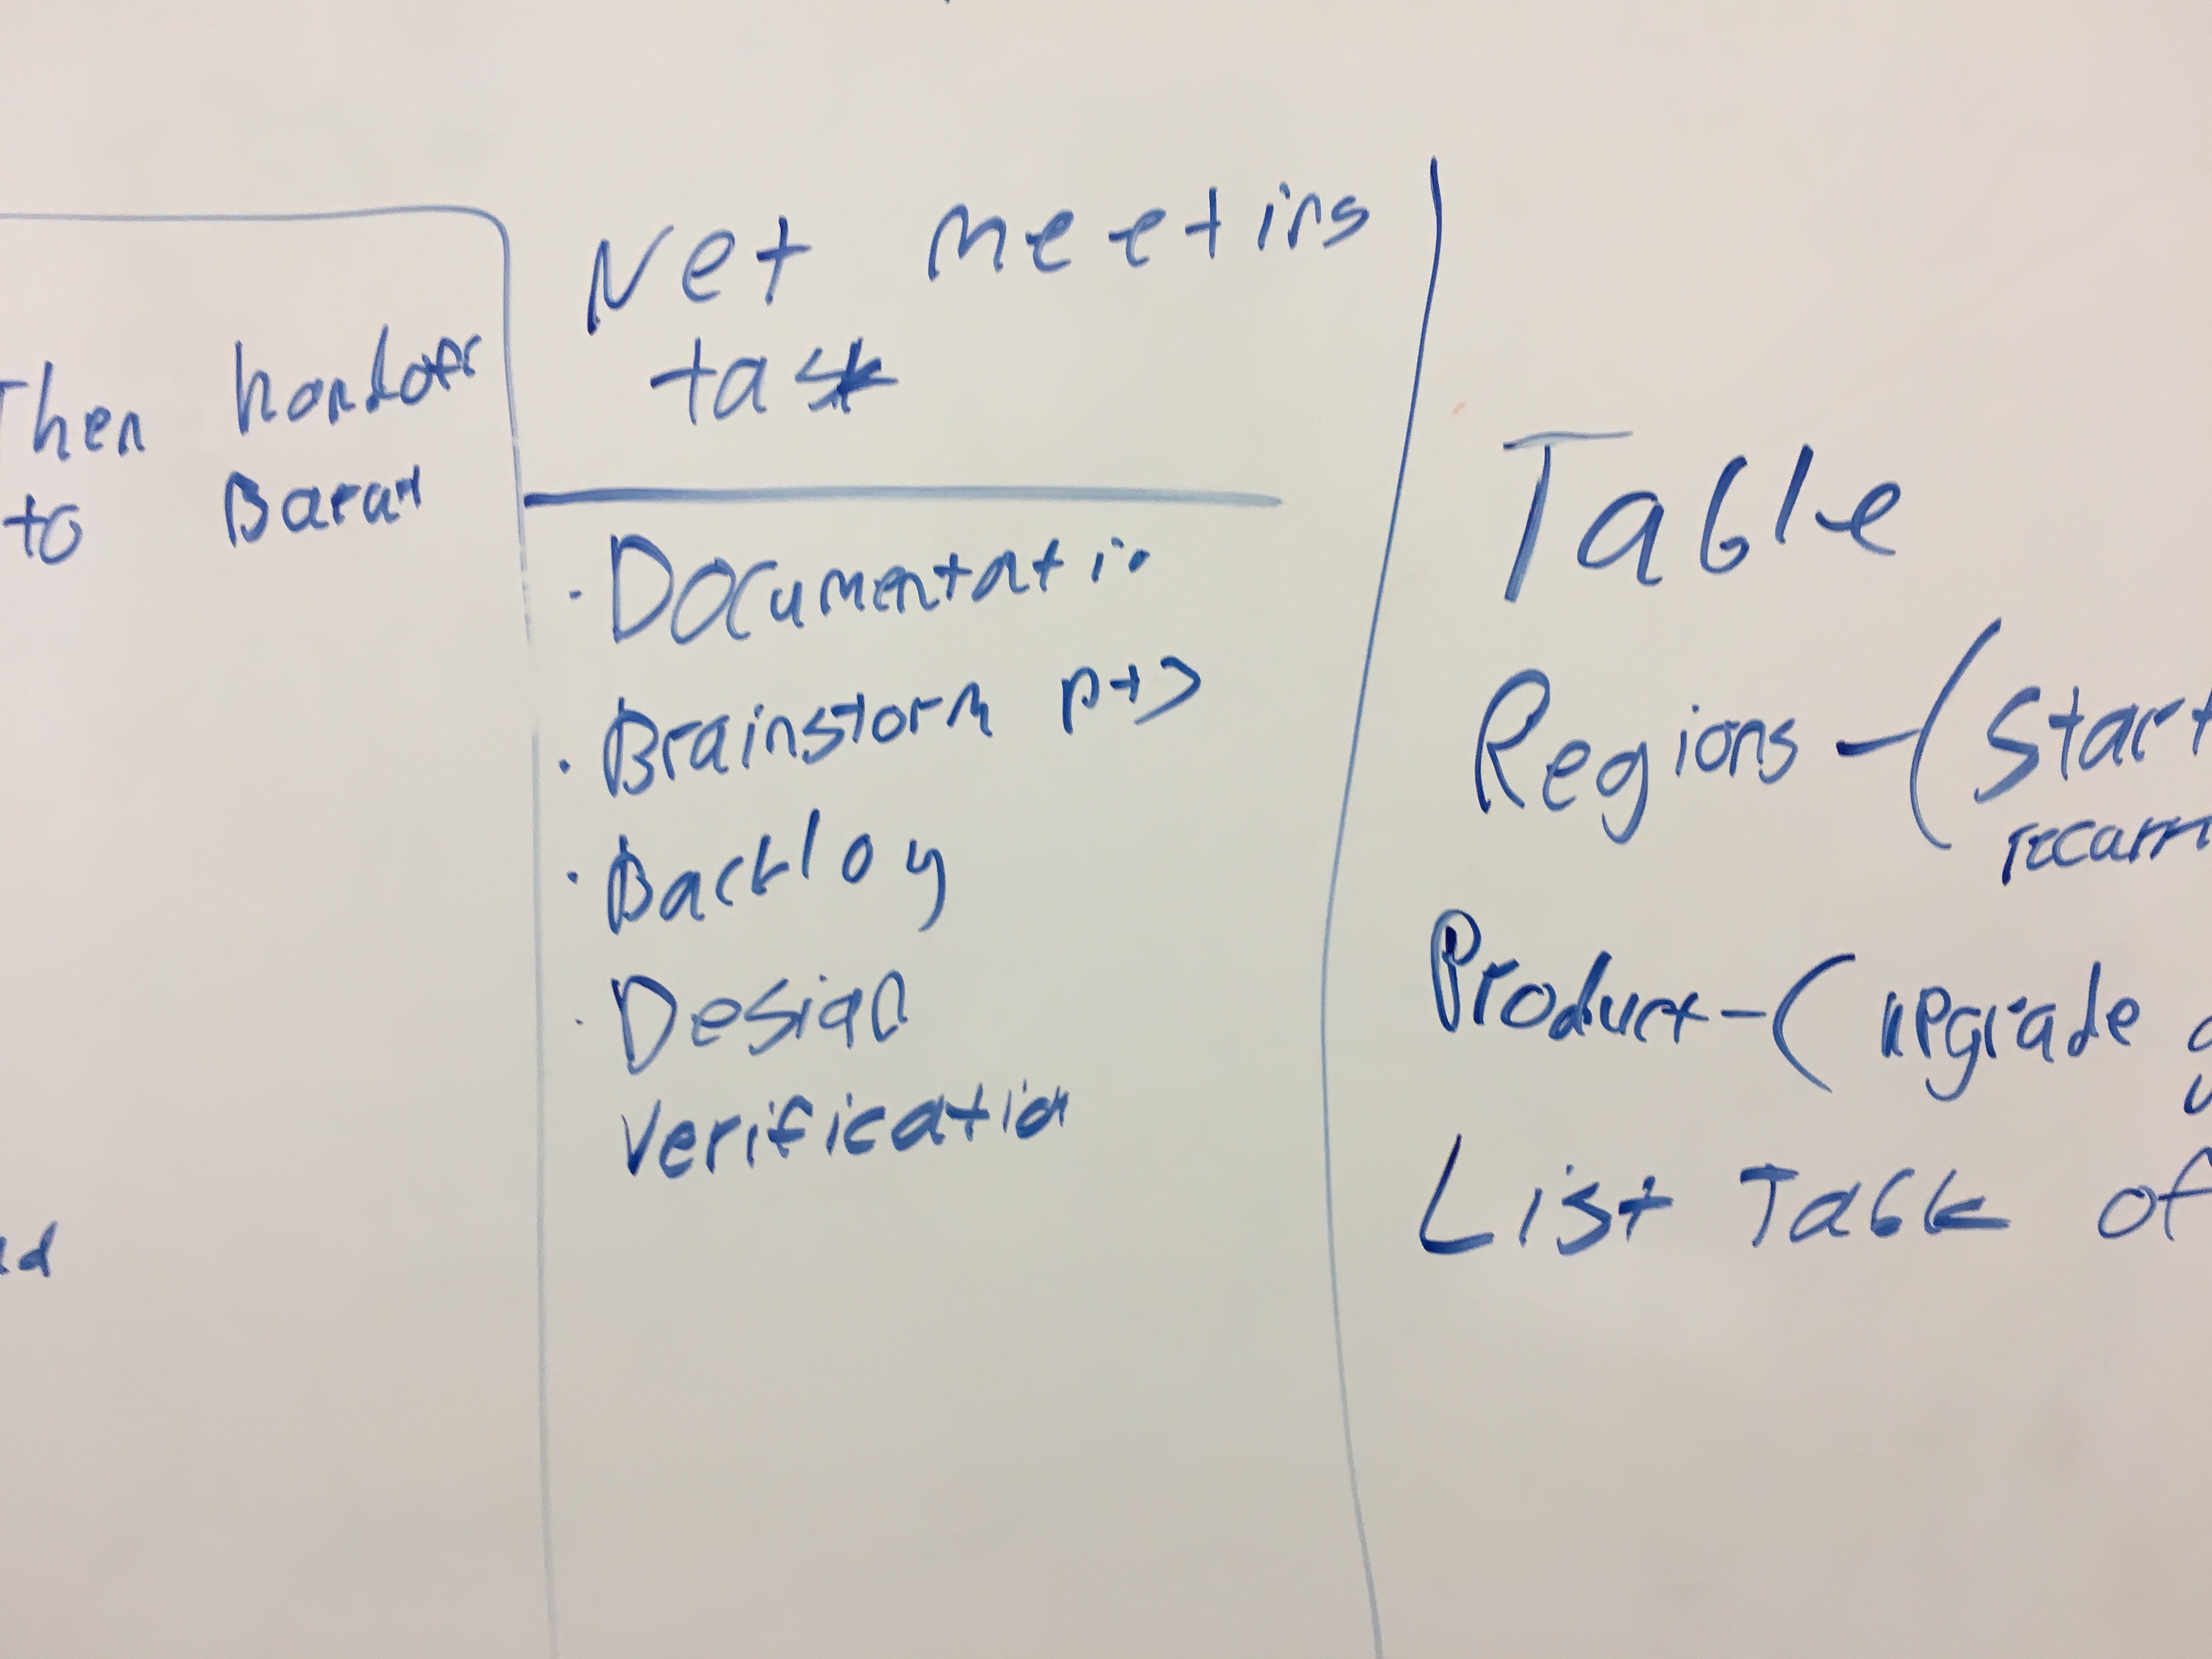 Then handoff
to Barat
Net meeting
task
· Documentatio
· Brainstorm pts
· Backlog
· Design
Verification
Table
Regions - (Start
Product - ( upgrade
List Task of